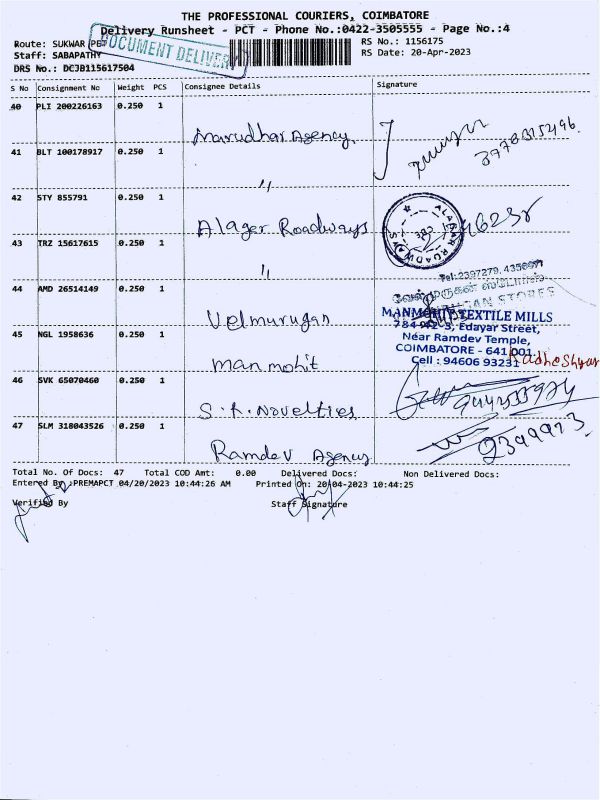 THE PROFESSIONAL COURIERS, COIMBATORE
Delivery Runsheet - PCT - Phone No.:0422-3505555 - Page No.:4
Route: SUKWAR PET
DOCUMENT DELIVERY
RS No.: 1156175
Staff: SABAPATHY
RS Date: 20-Apr-2023
DRS No.: DCJB115617504
S No Consignment No Weight PCS Consignee Details Signature
40 PLI 200226163 0.250 1
Marudhar Agency
41 BLT 100178917 0.250 1
"
42 STY 855791 0.250 1
Alager Roadways
43 TRZ 15617615 0.250 1
"
Tel:2397279, 4350971
44 AMD 26514149 0.250 1
வேல்முருகன் ஸ்டோர்ஸ்
STORES
Velmurugan
MANMOHIT TEXTILE MILLS
Edayar Street,
Near Ramdev Temple,
45 NGL 1958636 0.250 1
COIMBATORE - 641 001.
Cell : 94606 93231
Radheshyam
manmohit
46 SVK 65070460 0.250 1
S.K. Novelties
47 SLM 318043526 0.250 1
2399973
Ramdev Agency
Total No. Of Docs: 47 Total COD Amt: 0.00 Delivered Docs: Non Delivered Docs:
Entered By :PREMAPCT 04/20/2023 10:44:26 AM Printed On: 20-04-2023 10:44:25
Verified By Staff Signature